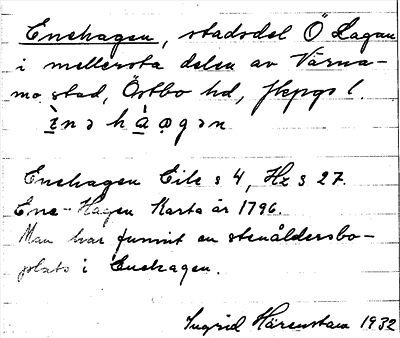 Enehagen, stadsdel Ö Lagan
i mellersta delen av Värna-
mo stad, Östbo hd, Jkpgs l.
ènə hàɡən
Enehagen Eik s 4, Hz s 27.
Ene-Hagen Karta år 1796.
Man har funnit en stenåldersbo-
plats i Enehagen.
Ingrid Härenstam 1932